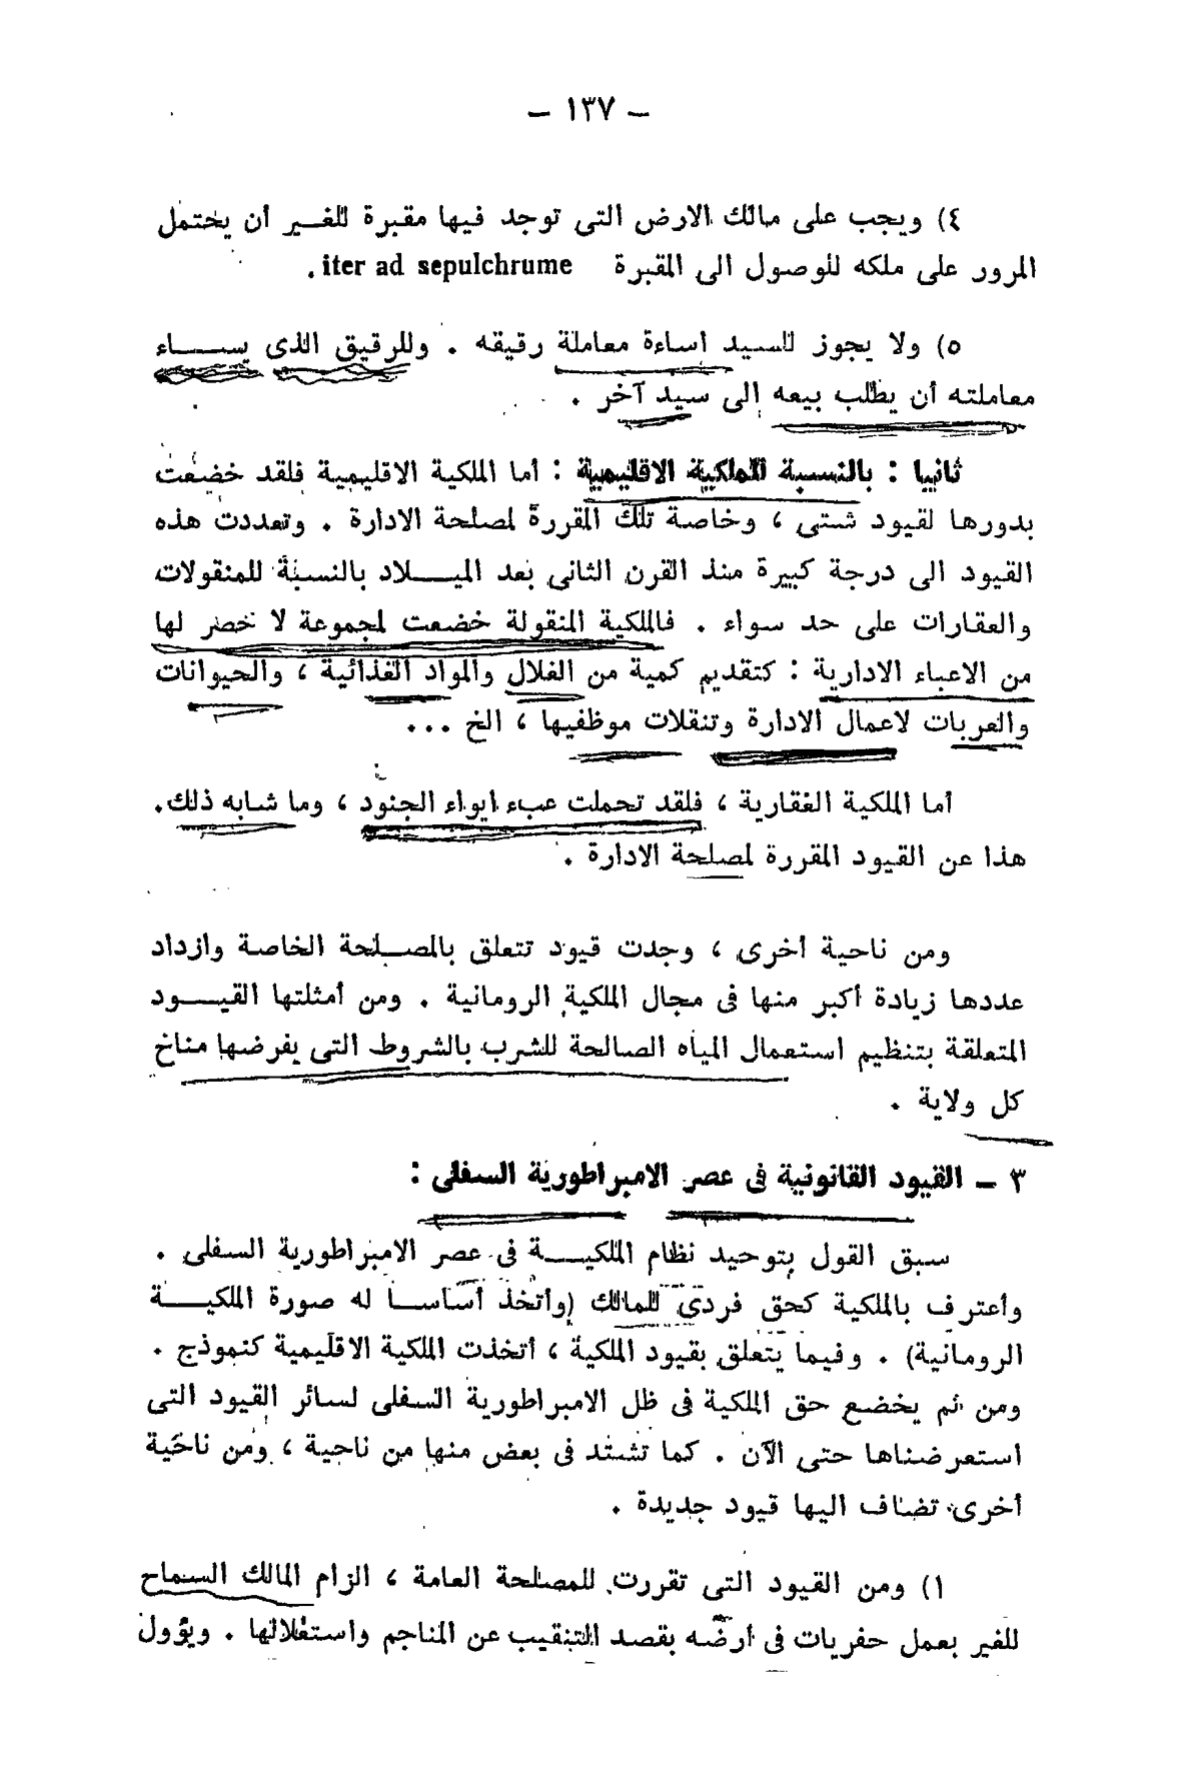 — ١٣٧ —
٤) ويجب على مالك الارض التى توجد فيها مقبرة للغير أن يحتمل
المرور على ملكه للوصول الى المقبرة iter ad sepulchrume .
٥) ولا يجوز للسيد اساءة معاملة رقيقه . وللرقيق الذى يساء
معاملته أن يطلب بيعه إلى سيد آخر .
ثانيا : بالنسبة للملكية الاقليمية : أما الملكية الاقليمية فلقد خضعت
بدورها لقيود شتى ، وخاصة تلك المقررة لمصلحة الادارة . وتعددت هذه
القيود الى درجة كبيرة منذ القرن الثانى بعد الميلاد بالنسبة للمنقولات
والعقارات على حد سواء . فالملكية المنقولة خضعت لمجموعة لا حصر لها
من الاعباء الادارية : كتقديم كمية من الغلال والمواد الغذائية ، والحيوانات
والعربات لاعمال الادارة وتنقلات موظفيها ، الخ ...
أما الملكية العقارية ، فلقد تحملت عبء ايواء الجنود ، وما شابه ذلك.
هذا عن القيود المقررة لمصلحة الادارة .
ومن ناحية أخرى ، وجدت قيود تتعلق بالمصلحة الخاصة وازداد
عددها زيادة أكبر منها فى مجال الملكية الرومانية . ومن أمثلتها القيود
المتعلقة بتنظيم استعمال المياه الصالحة للشرب بالشروط التى يفرضها مناخ
كل ولاية .
٣ — القيود القانونية فى عصر الامبراطورية السفلى :
سبق القول بتوحيد نظام الملكية فى عصر الامبراطورية السفلى .
وأعترف بالملكية كحق فردى للمالك (وأتخذ أساسا له صورة الملكية
الرومانية) . وفيما يتعلق بقيود الملكية ، أتخذت الملكية الاقليمية كنموذج .
ومن ثم يخضع حق الملكية فى ظل الامبراطورية السفلى لسائر القيود التى
استعرضناها حتى الآن . كما تشتد فى بعض منها من ناحية ، ومن ناحية
أخرى تضاف اليها قيود جديدة .
١) ومن القيود التى تقررت للمصلحة العامة ، الزام المالك السماح
للغير بعمل حفريات فى أرضه بقصد التنقيب عن المناجم واستغلالها . ويؤول